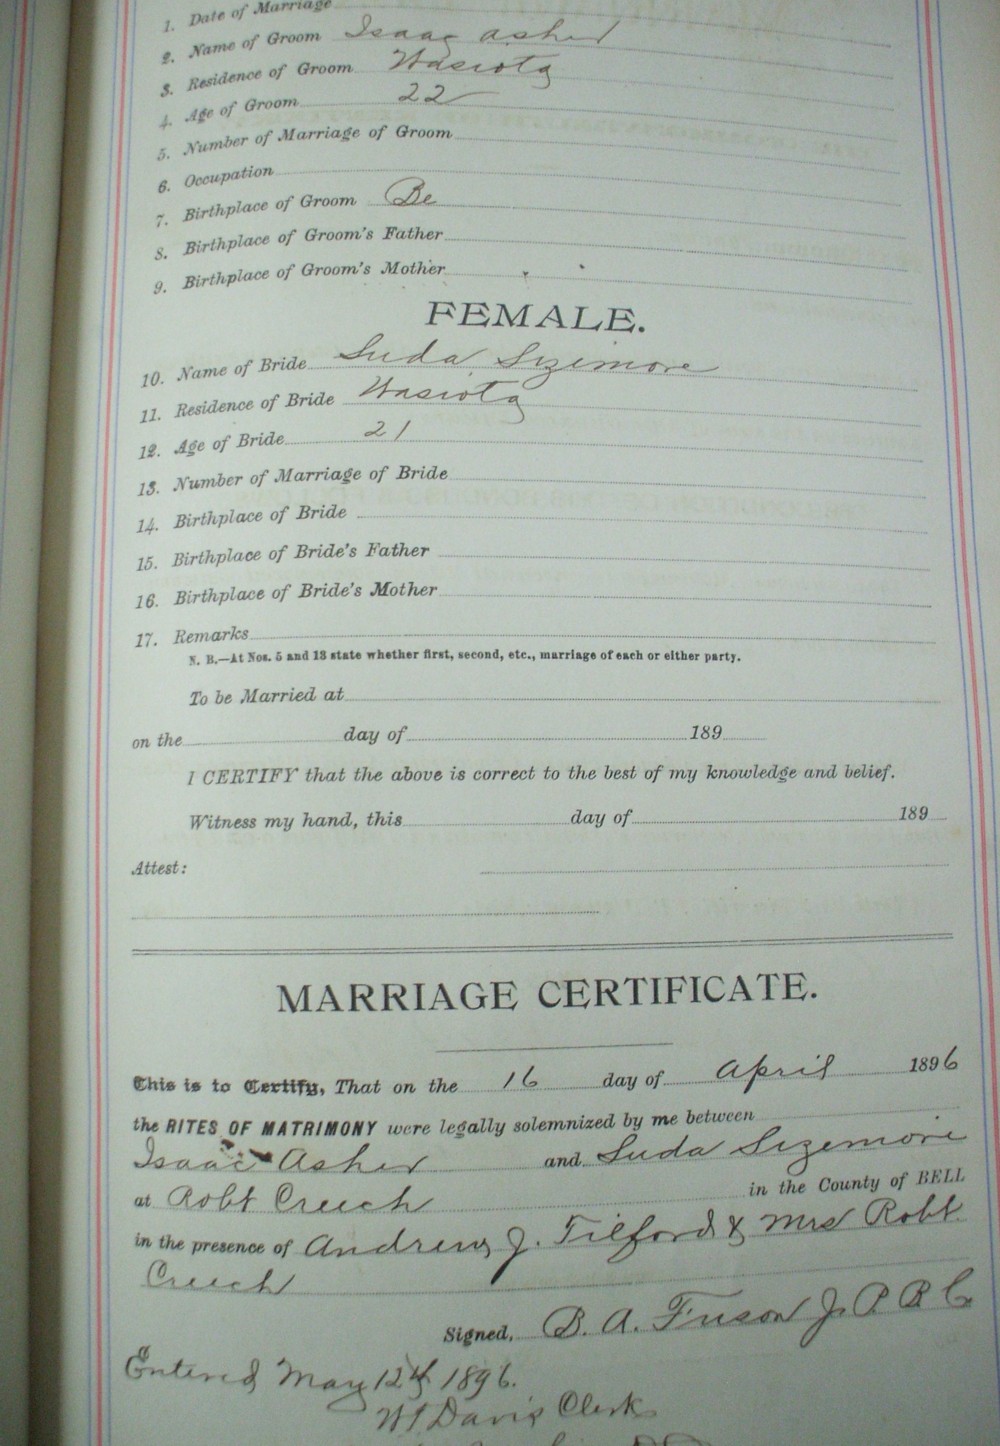 1. Date of Marriage
2. Name of Groom Isaac Asher
3. Residence of Groom Wasiota
4. Age of Groom 22
5. Number of Marriage of Groom
6. Occupation
7. Birthplace of Groom Be
8. Birthplace of Groom's Father
9. Birthplace of Groom's Mother
FEMALE.
10. Name of Bride Suda Sizemore
11. Residence of Bride Wasiota
12. Age of Bride 21
13. Number of Marriage of Bride
14. Birthplace of Bride
15. Birthplace of Bride's Father
16. Birthplace of Bride's Mother
17. Remarks
N. B.—At Nos. 5 and 13 state whether first, second, etc., marriage of each or either party.
To be Married at
on the day of 189
I CERTIFY that the above is correct to the best of my knowledge and belief.
Witness my hand, this day of 189
Attest:
MARRIAGE CERTIFICATE.
This is to Certify, That on the 16 day of April 1896
the RITES OF MATRIMONY were legally solemnized by me between
Isaac Asher and Suda Sizemore
at Robt Creech in the County of BELL
in the presence of Andrew J. Tilford & Mrs Robt
Creech
Signed, B. A. Fuson J. P. B. C
Entered May 12th 1896.
WT Davis Clerk